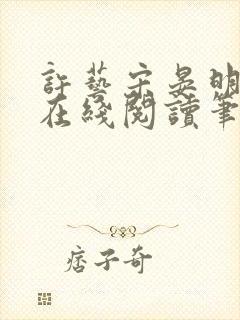 許藝宋晏明
在綫閱讀筆
痞子奇